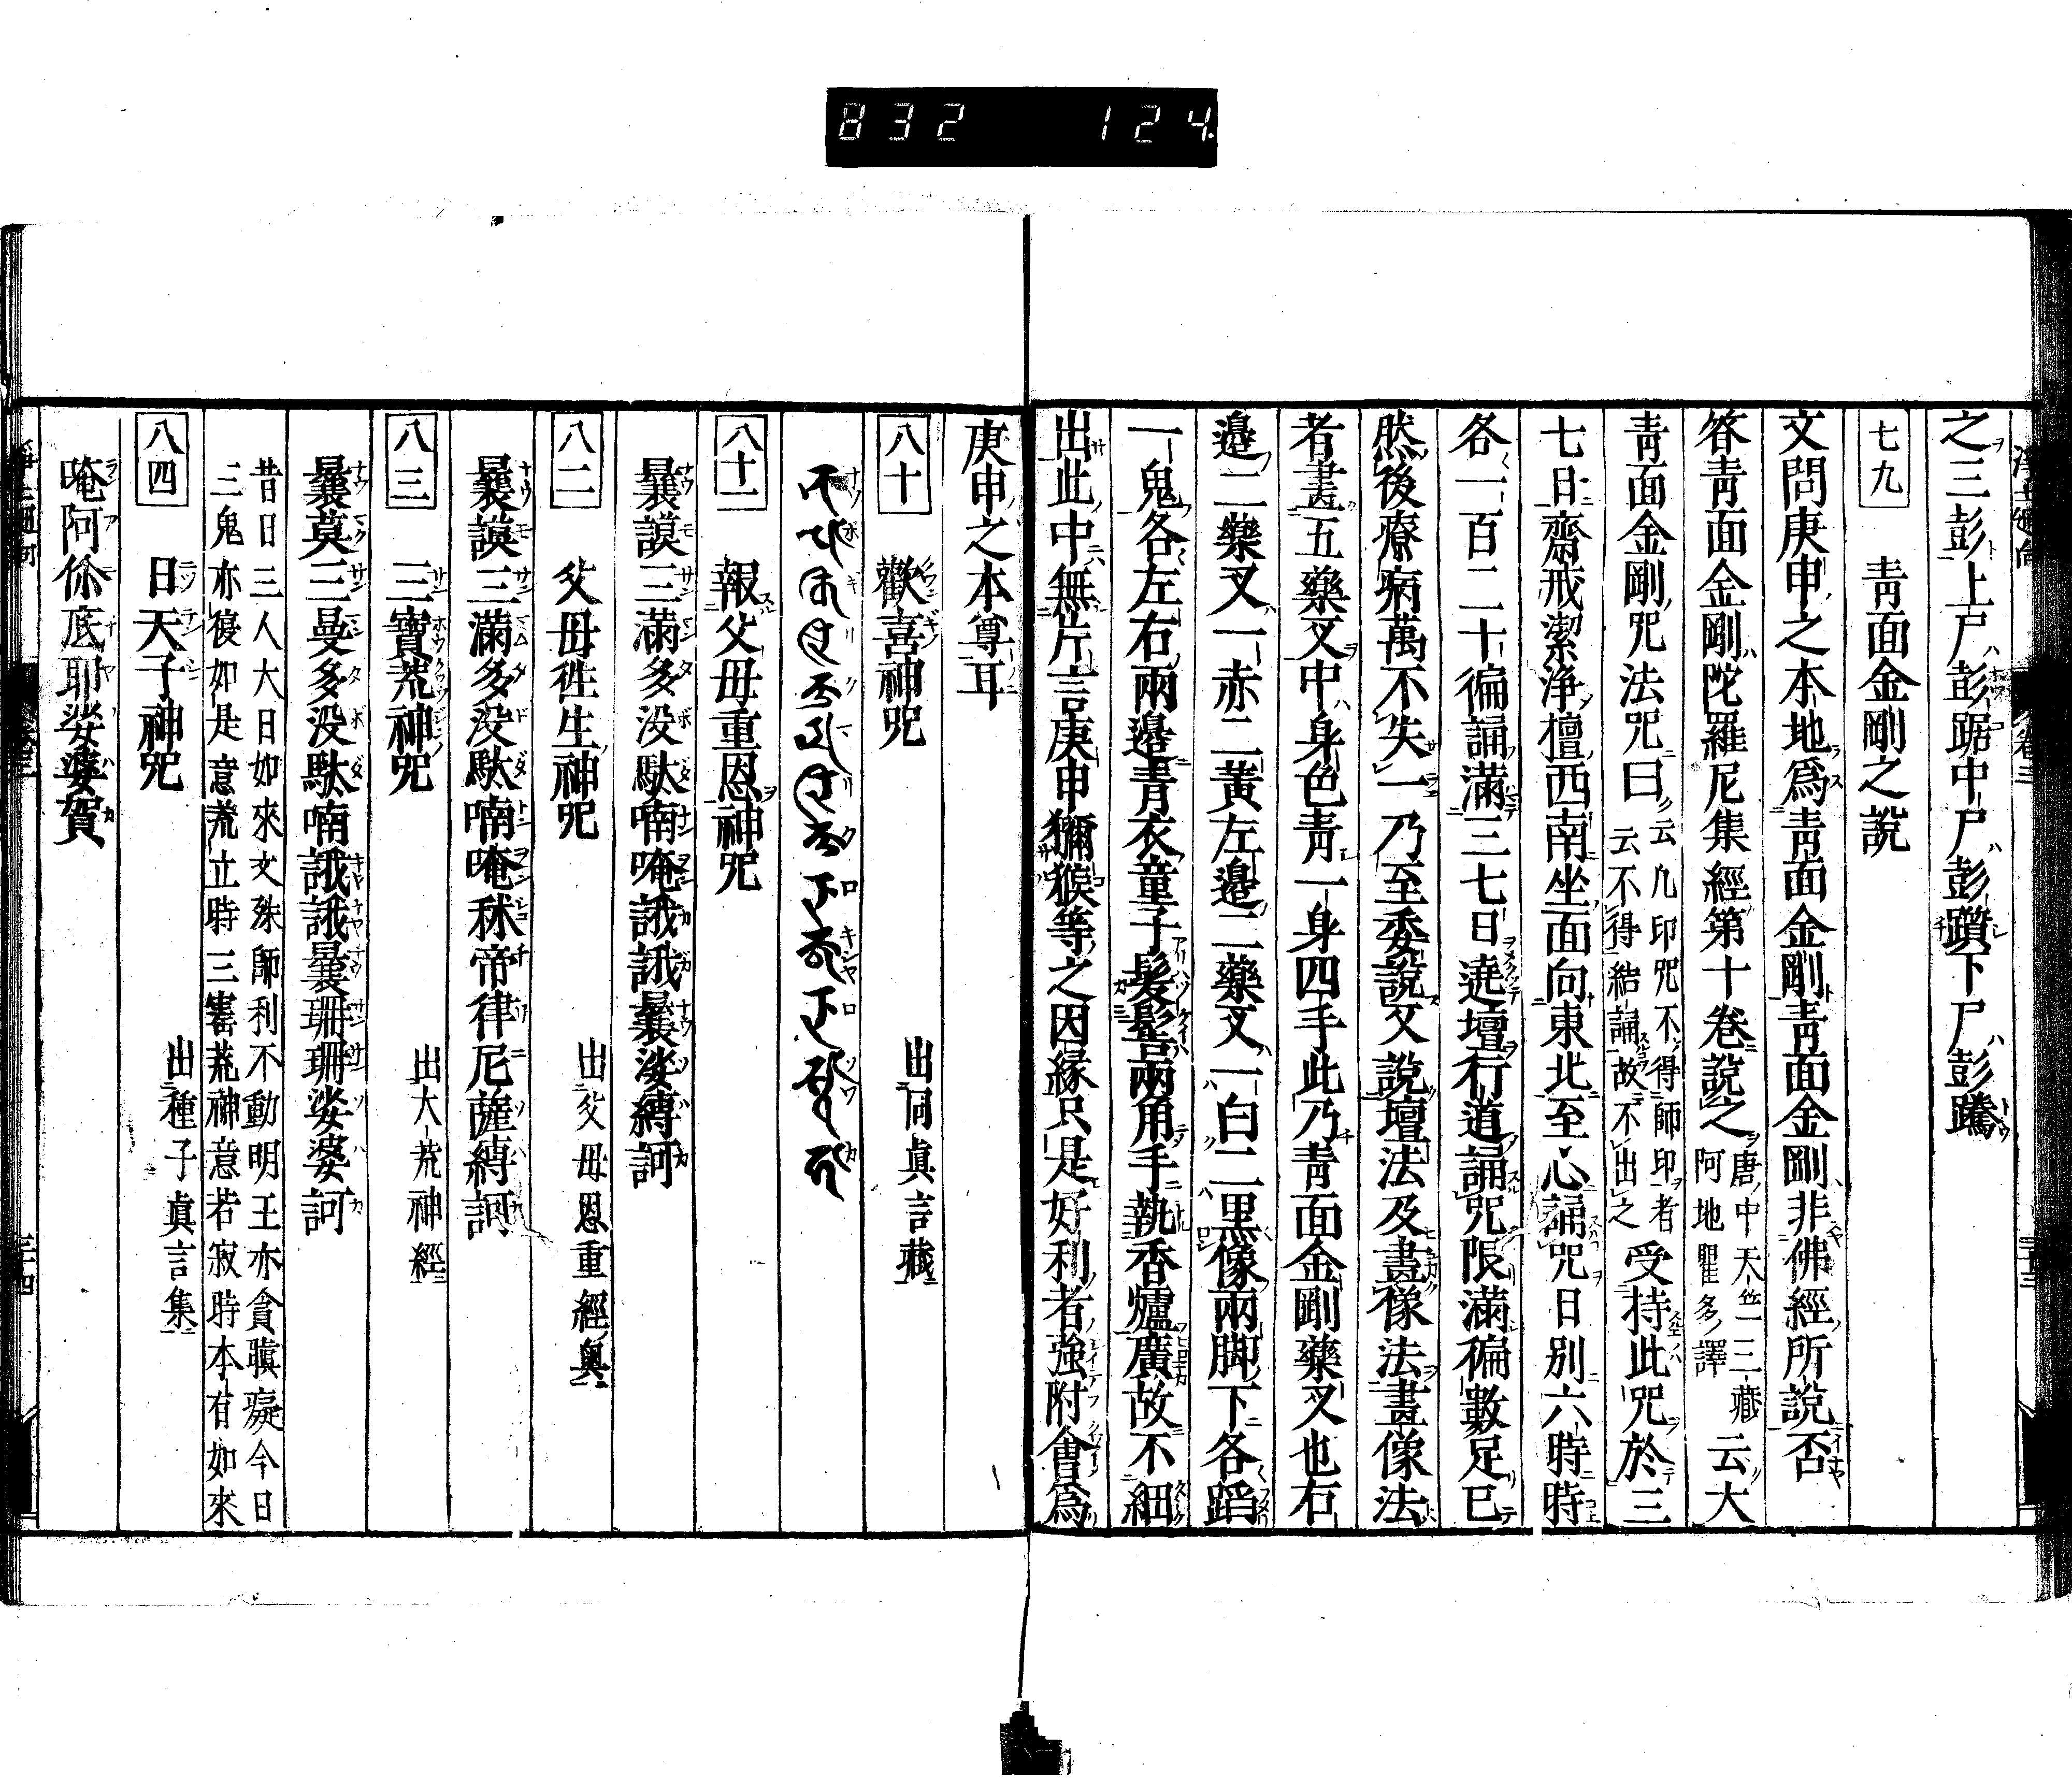 832 124.
之三彭上尸彭踞中尸彭躓下尸彭蹻
七九 靑面金剛之說
文問庚申之本地爲靑面金剛靑面金剛非佛經所說否
答靑面金剛陀羅尼集經第十卷說之唐中天竺三藏阿地瞿多譯云大
靑面金剛咒法咒曰云凡印咒不得師印者云不得結誦故不出之受持此咒於三
七日齋戒潔淨檀西南坐面向東北至心誦咒日別六時時
各一百二十徧誦滿三七日遶壇行道誦咒限滿徧數足已
然後療病萬不失一乃至委說又說壇法及畫像法畫像法
者畫五藥叉中身色靑一身四手此乃靑面金剛藥叉也右
邊二藥叉一赤二黃左邊二藥叉一白二黑像兩脚下各蹈
一鬼各左右兩邊靑衣童子髮髻兩角手執香爐廣故不細
出此中無片言庚申獼猴等之因緣只是好利者強附會爲
庚申之本尊耳
八十 歡喜神咒 出同眞言藏
八十一 報父母重恩神咒
曩謨三滿多没馱喃唵誐誐曩娑縛訶
八二 父母徃生神咒 出父母恩重經奧
曩謨三滿多没馱喃唵秫帝律尼薩縛訶
八三 三寶荒神咒 出大荒神經
曩莫三曼多没馱喃誐誐曩珊珊娑婆訶
昔日三人大日如來文殊師利不動明王亦貪瞋癡今日
三鬼亦復如是意荒立時三寳荒神意若寂時本有如來
八四 日天子神咒 出種子眞言集
唵阿你底耶娑婆賀